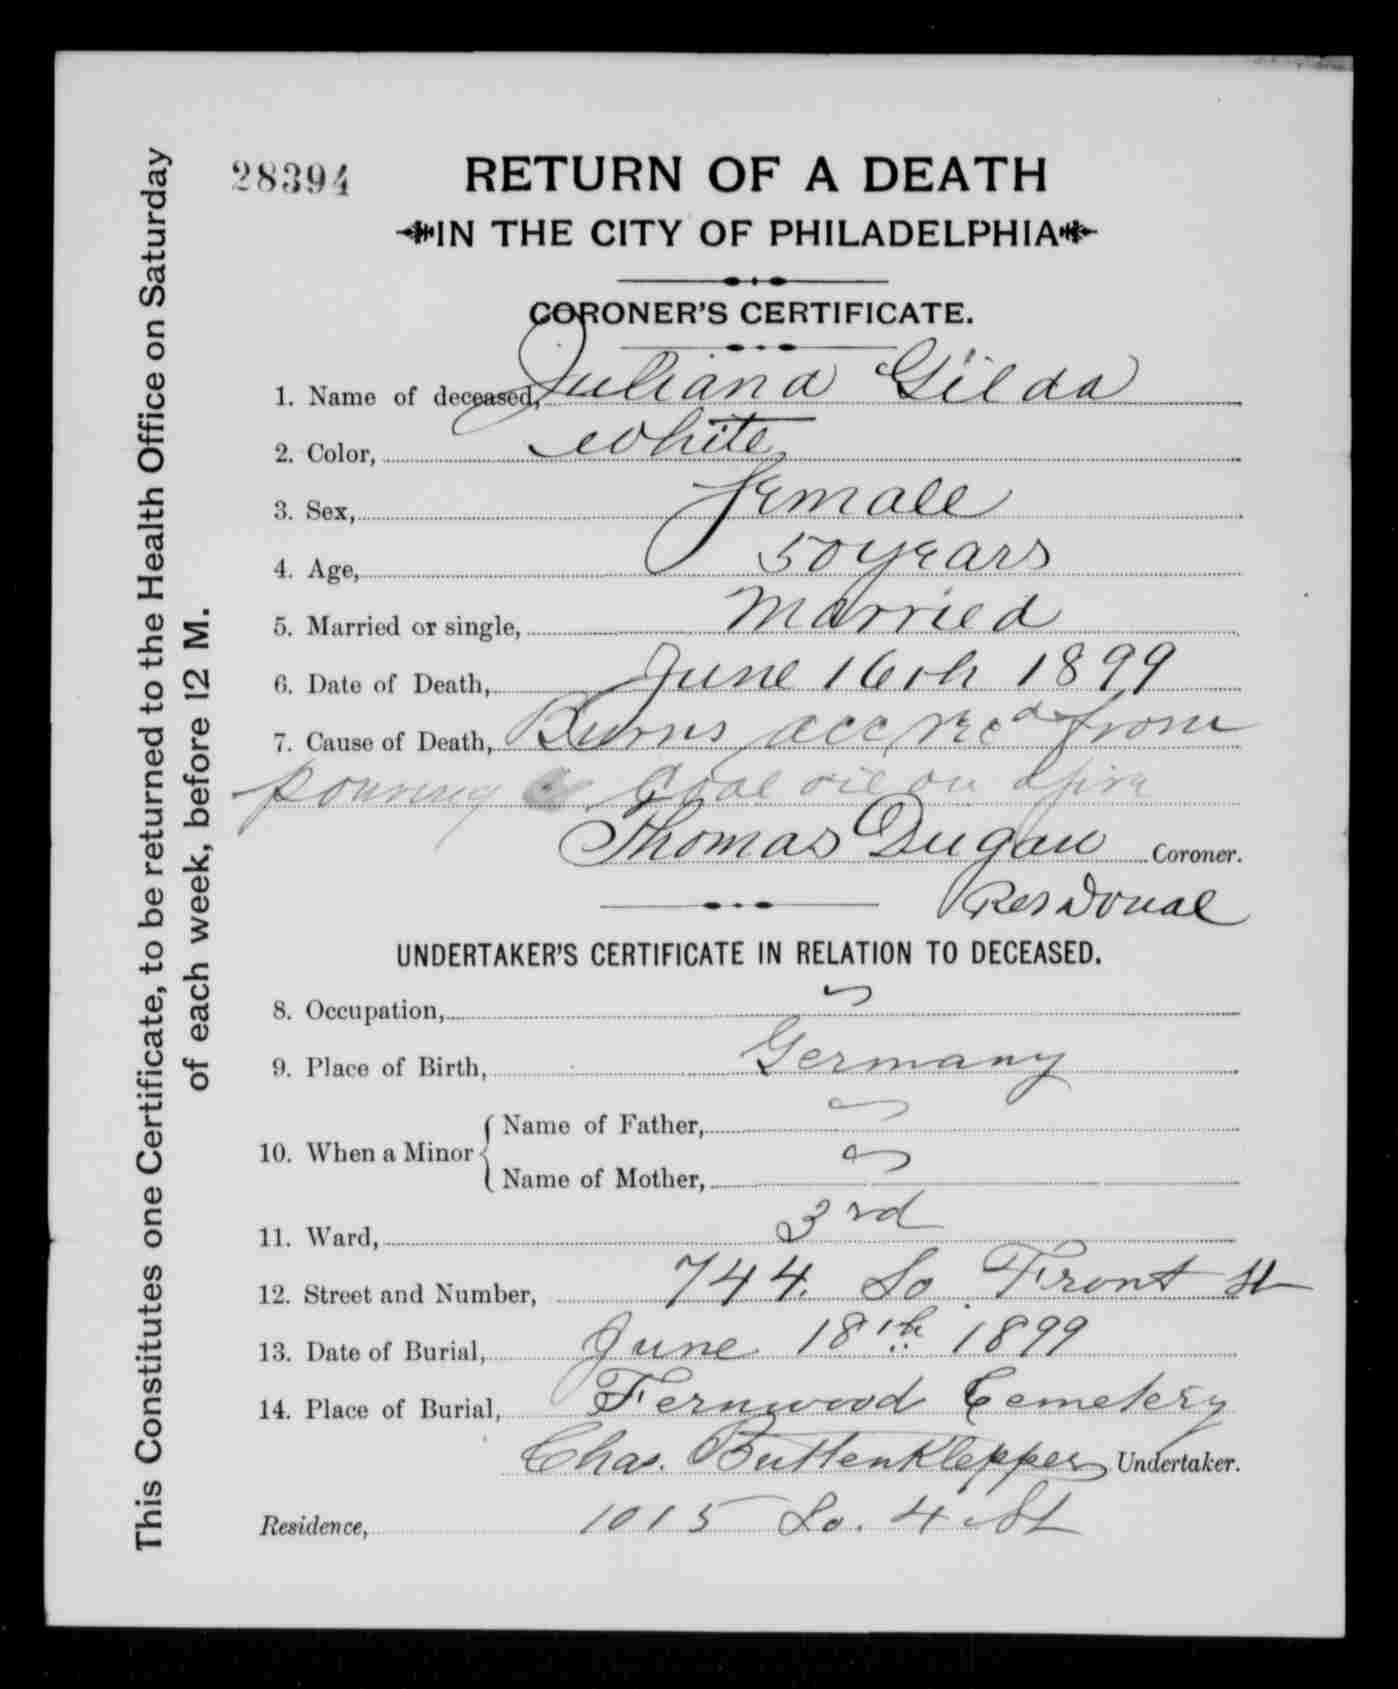 28394
RETURN OF A DEATH
IN THE CITY OF PHILADELPHIA
CORONER'S CERTIFICATE.
1. Name of deceased, Juliana Gilda
2. Color, White
3. Sex, female
4. Age, 50 years
5. Married or single, Married
6. Date of Death, June 16th 1899
7. Cause of Death, Burns acc rec^d from
pouring Coal oil on a fire
Thomas Dugan Coroner.
UNDERTAKER'S CERTIFICATE IN RELATION TO DECEASED.
8. Occupation,
9. Place of Birth, Germany
10. When a Minor { Name of Father,
Name of Mother,
11. Ward, 3rd
12. Street and Number, 744. So. Front St
13. Date of Burial, June 18th 1899
14. Place of Burial, Fernwood Cemetery
Chas. Buttenklepper Undertaker.
Residence, 1015 So. 4 St
This Constitutes one Certificate, to be returned to the Health Office on Saturday
of each week, before 12 M.